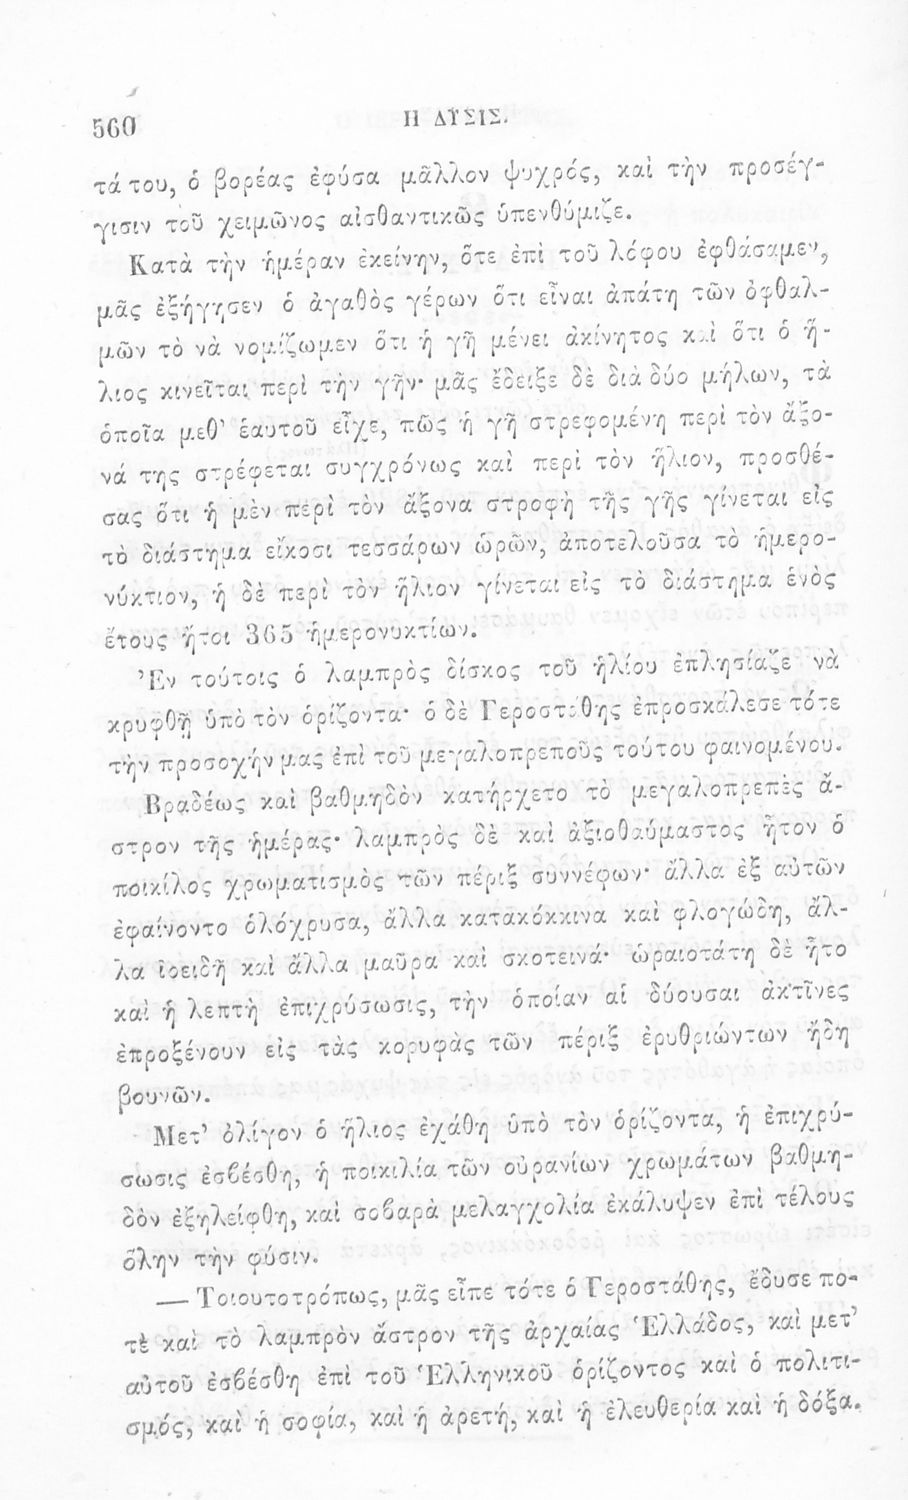 560
Η ΔΥΣΙΣ.
τά του, ὁ βορέας ἐφύσα μᾶλλον ψυχρός, καὶ τὴν προσέγ-
γισιν τοῦ χειμῶνος αἰσθαντικῶς ὑπενθύμιζε.
Κατὰ τὴν ἡμέραν ἐκείνην, ὅτε ἐπὶ τοῦ λόφου ἐφθάσαμεν,
μᾶς ἐξήγησεν ὁ ἀγαθὸς γέρων ὅτι εἶναι ἀπάτη τῶν ὀφθαλ-
μῶν τὸ νὰ νομίζωμεν ὅτι ἡ γῆ μένει ἀκίνητος καὶ ὅτι ὁ ἥ-
λιος κινεῖται περὶ τὴν γῆν· μᾶς ἔδειξε δὲ διὰ δύο μήλων, τὰ
ὁποῖα μεθ' ἑαυτοῦ εἶχε, πῶς ἡ γῆ στρεφομένη περὶ τὸν ἄξο-
νά της στρέφεται συγχρόνως καὶ περὶ τὸν ἥλιον, προσθέ-
σας ὅτι ἡ μὲν περὶ τὸν ἄξονα στροφὴ τῆς γῆς γίνεται εἰς
τὸ διάστημα εἴκοσι τεσσάρων ὡρῶν, ἀποτελοῦσα τὸ ἡμερο-
νύκτιον, ἡ δὲ περὶ τὸν ἥλιον γίνεται εἰς τὸ διάστημα ἑνὸς
ἔτους ἤτοι 365 ἡμερονυκτίων.
Ἐν τούτοις ὁ λαμπρὸς δίσκος τοῦ ἡλίου ἐπλησίαζε νὰ
κρυφθῇ ὑπὸ τὸν ὁρίζοντα· ὁ δὲ Γεροστάθης ἐπροσκάλεσε τότε
τὴν προσοχήν μας ἐπὶ τοῦ μεγαλοπρεποῦς τούτου φαινομένου.
Βραδέως καὶ βαθμηδὸν κατήρχετο τὸ μεγαλοπρεπὲς ἄ-
στρον τῆς ἡμέρας· λαμπρὸς δὲ καὶ ἀξιοθαύμαστος ἦτον ὁ
ποικίλος χρωματισμὸς τῶν πέριξ συννέφων· ἄλλα ἐξ αὐτῶν
ἐφαίνοντο ὁλόχρυσα, ἄλλα κατακόκκινα καὶ φλογώδη, ἄλ-
λα ἰοειδῆ καὶ ἄλλα μαῦρα καὶ σκοτεινά· ὡραιοτάτη δὲ ἦτο
καὶ ἡ λεπτὴ ἐπιχρύσωσις, τὴν ὁποίαν αἱ δύουσαι ἀκτῖνες
ἐπροξένουν εἰς τὰς κορυφὰς τῶν πέριξ ἐρυθριώντων ἤδη
βουνῶν.
Μετ' ὀλίγον ὁ ἥλιος ἐχάθη ὑπὸ τὸν ὁρίζοντα, ἡ ἐπιχρύ-
σωσις ἐσβέσθη, ἡ ποικιλία τῶν οὐρανίων χρωμάτων βαθμη-
δὸν ἐξηλείφθη, καὶ σοβαρὰ μελαγχολία ἐκάλυψεν ἐπὶ τέλους
ὅλην τὴν φύσιν.
— Τοιουτοτρόπως, μᾶς εἶπε τότε ὁ Γεροστάθης, ἔδυσε πο-
τὲ καὶ τὸ λαμπρὸν ἄστρον τῆς ἀρχαίας Ἑλλάδος, καὶ μετ'
αὐτοῦ ἐσβέσθη ἐπὶ τοῦ Ἑλληνικοῦ ὁρίζοντος καὶ ὁ πολιτι-
σμός, καὶ ἡ σοφία, καὶ ἡ ἀρετή, καὶ ἡ ἐλευθερία καὶ ἡ δόξα.